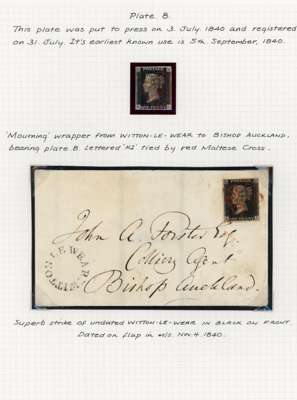 Plate 8.
This plate was put to press on 3 July. 1840 and registered
on 31. July. It's earliest known use is 5th. September, 1840.
POSTAGE
ONE PENNY
'Mourning' wrapper from WITTON-LE-WEAR to BISHOP AUCKLAND.
bearing plate 8. Lettered 'KI' tied by red Maltese Cross.
POSTAGE
ONE PENNY
John A. Forster Esq.
Colliery Agent
Bishop Auckland.
WITTON LE WEAR
Superb strike of undated WITTON-LE-WEAR in BLACK on FRONT
Dated on flap in m/s. Nov. 4. 1840.